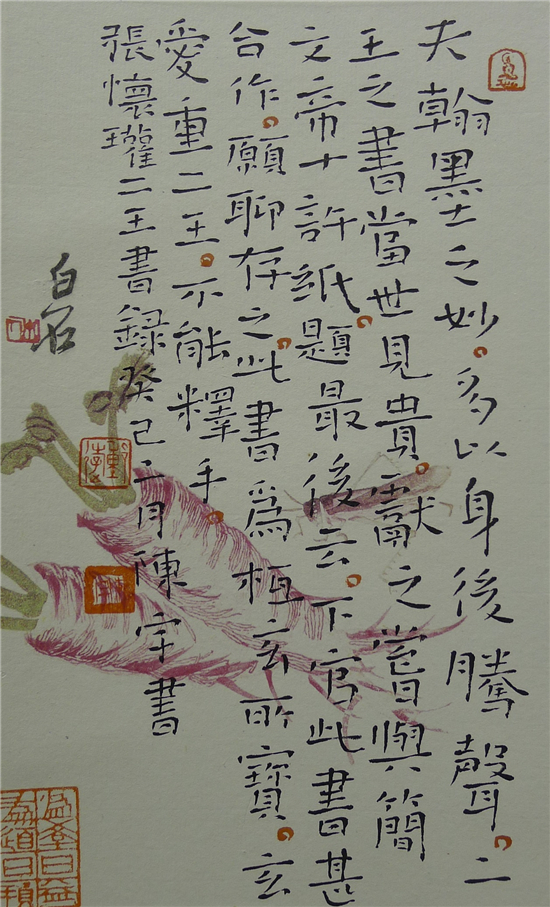 夫翰墨之妙。多以身後騰聲。二
王之書當世見貴。獻之嘗與簡
文帝十許紙。題最後云。下官此書甚
合作。願聊存之。此書爲桓玄所寶。玄
愛重二王。不能釋手。
張懷瓘二王書録癸巳二月陳宇書
白石